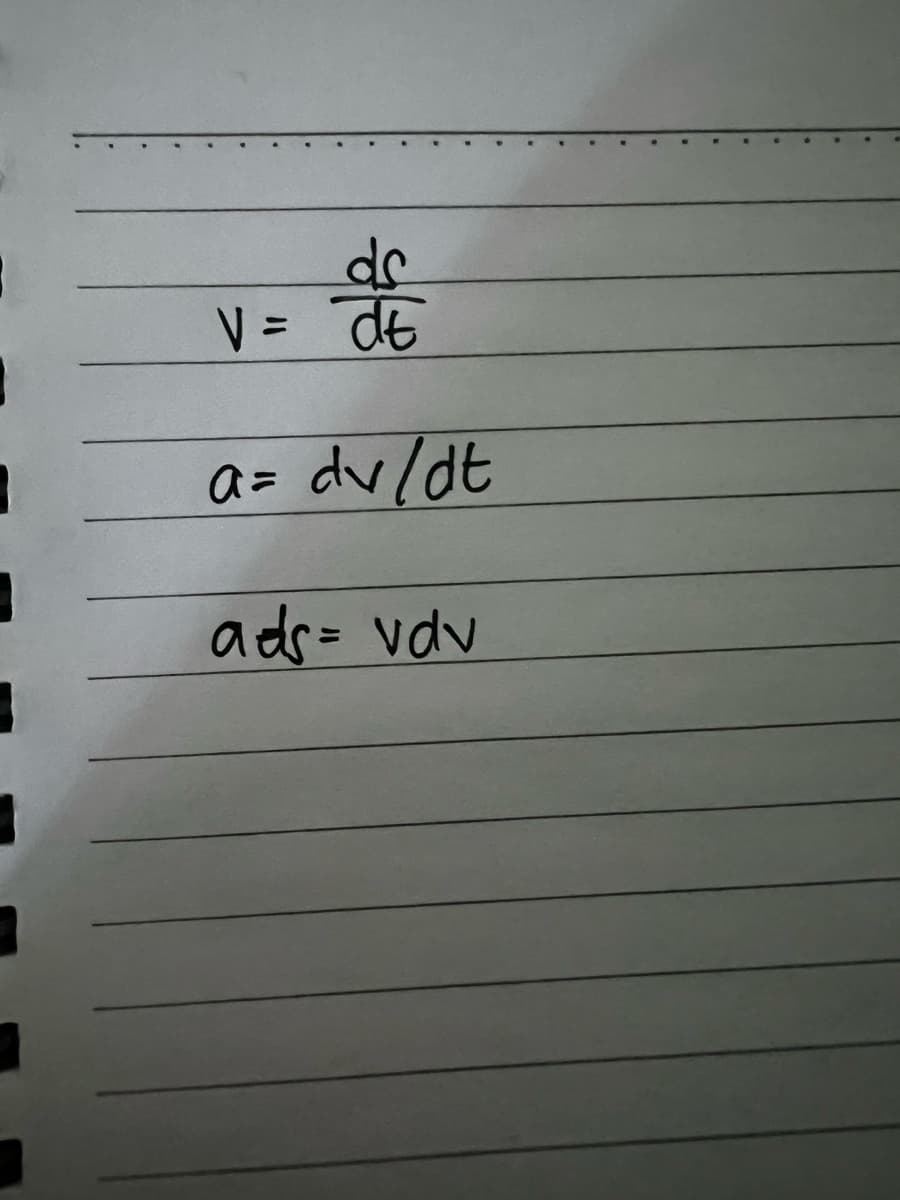 v = ds/dt
a= dv/dt
ads= vdv